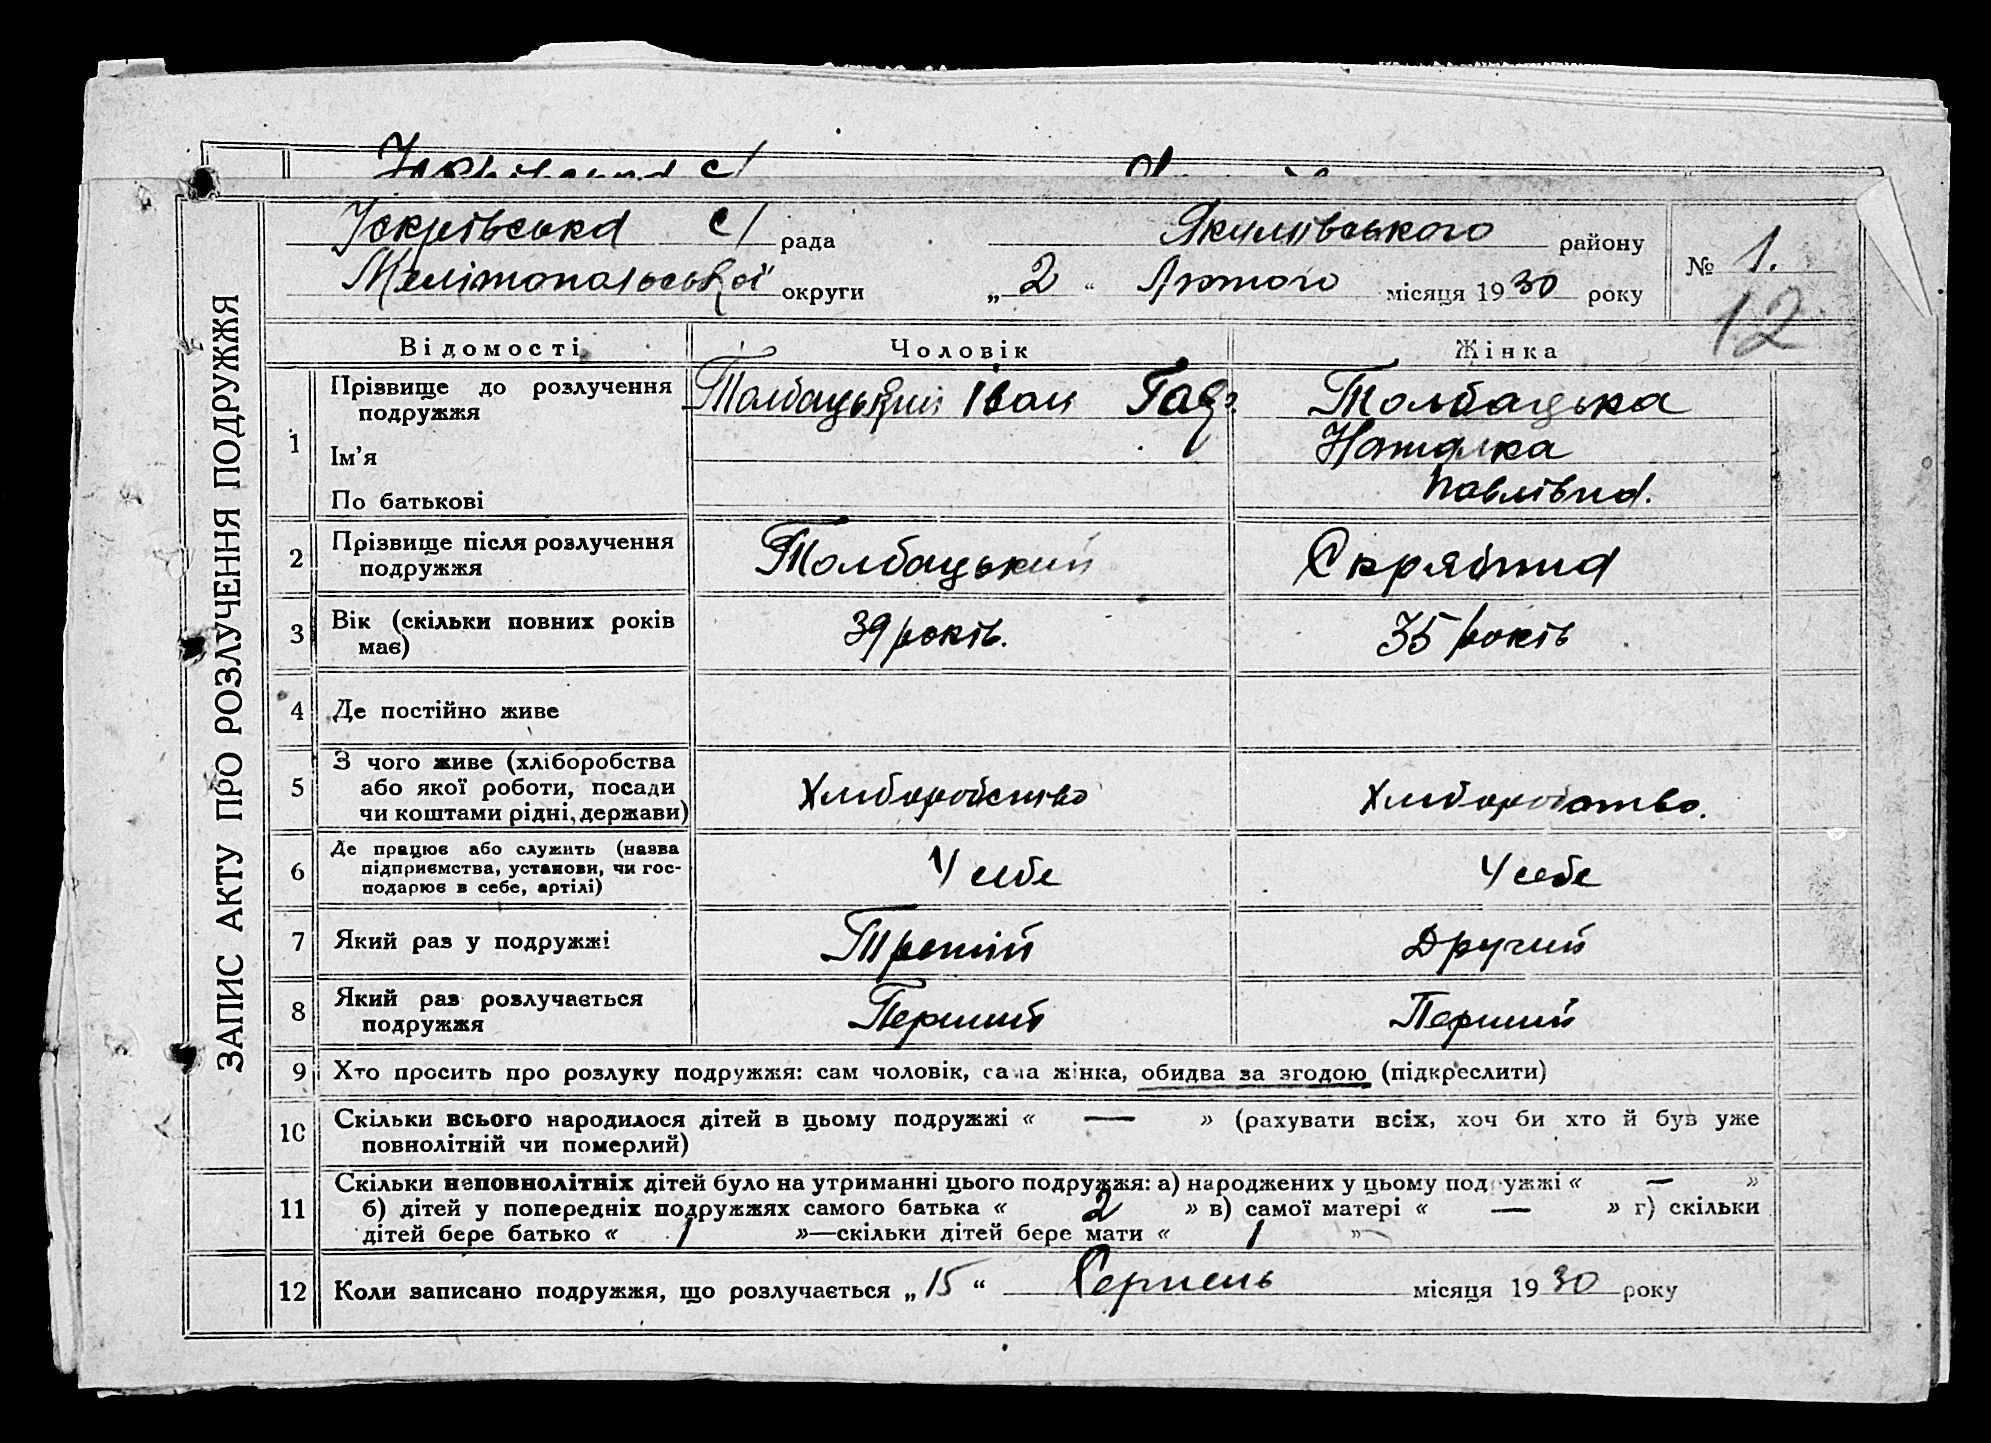 ЗАПИС АКТУ ПРО РОЗЛУЧЕННЯ ПОДРУЖЖЯ
с/ рада
Якимівського району
№ 1.
Мелітопольської округи
„ 2 “ Лютого місяця 1930 року
12
Відомості
Чоловік
Жінка
1
Прізвище до розлучення
подружжя
Ім'я
По батькові
Толбацький Іван
Толбацька
Наталка
Павлівна.
2
Прізвище після розлучення
подружжя
Толбацький
3
Вік (скільки повних років
має)
39 років.
35 років
4
Де постійно живе
5
З чого живе (хліборобства
або якої роботи, посади
чи коштами рідні, держави)
Хліборобство
Хліборобство.
6
Де працює або служить (назва
підприємства, установи, чи гос-
подарює в себе, артілі)
У себе
У себе
7
Який раз у подружжі
Третій
Другий
8
Який раз розлучається
подружжя
Перший
Перший
9
Хто просить про розлуку подружжя: сам чоловік, сама жінка, обидва за згодою (підкреслити)
10
Скільки всього народилося дітей в цьому подружжі « — » (рахувати всіх, хоч би хто й був уже
повнолітній чи померлий)
11
Скільки неповнолітніх дітей було на утриманні цього подружжя: а) народжених у цьому подружжі « — »
б) дітей у попередніх подружжях самого батька « 2 » в) самої матері « — » г) скільки
дітей бере батько « 1 »—скільки дітей бере мати « 1 »
12
Коли записано подружжя, що розлучається „ 15 “ Серпень місяця 1930 року